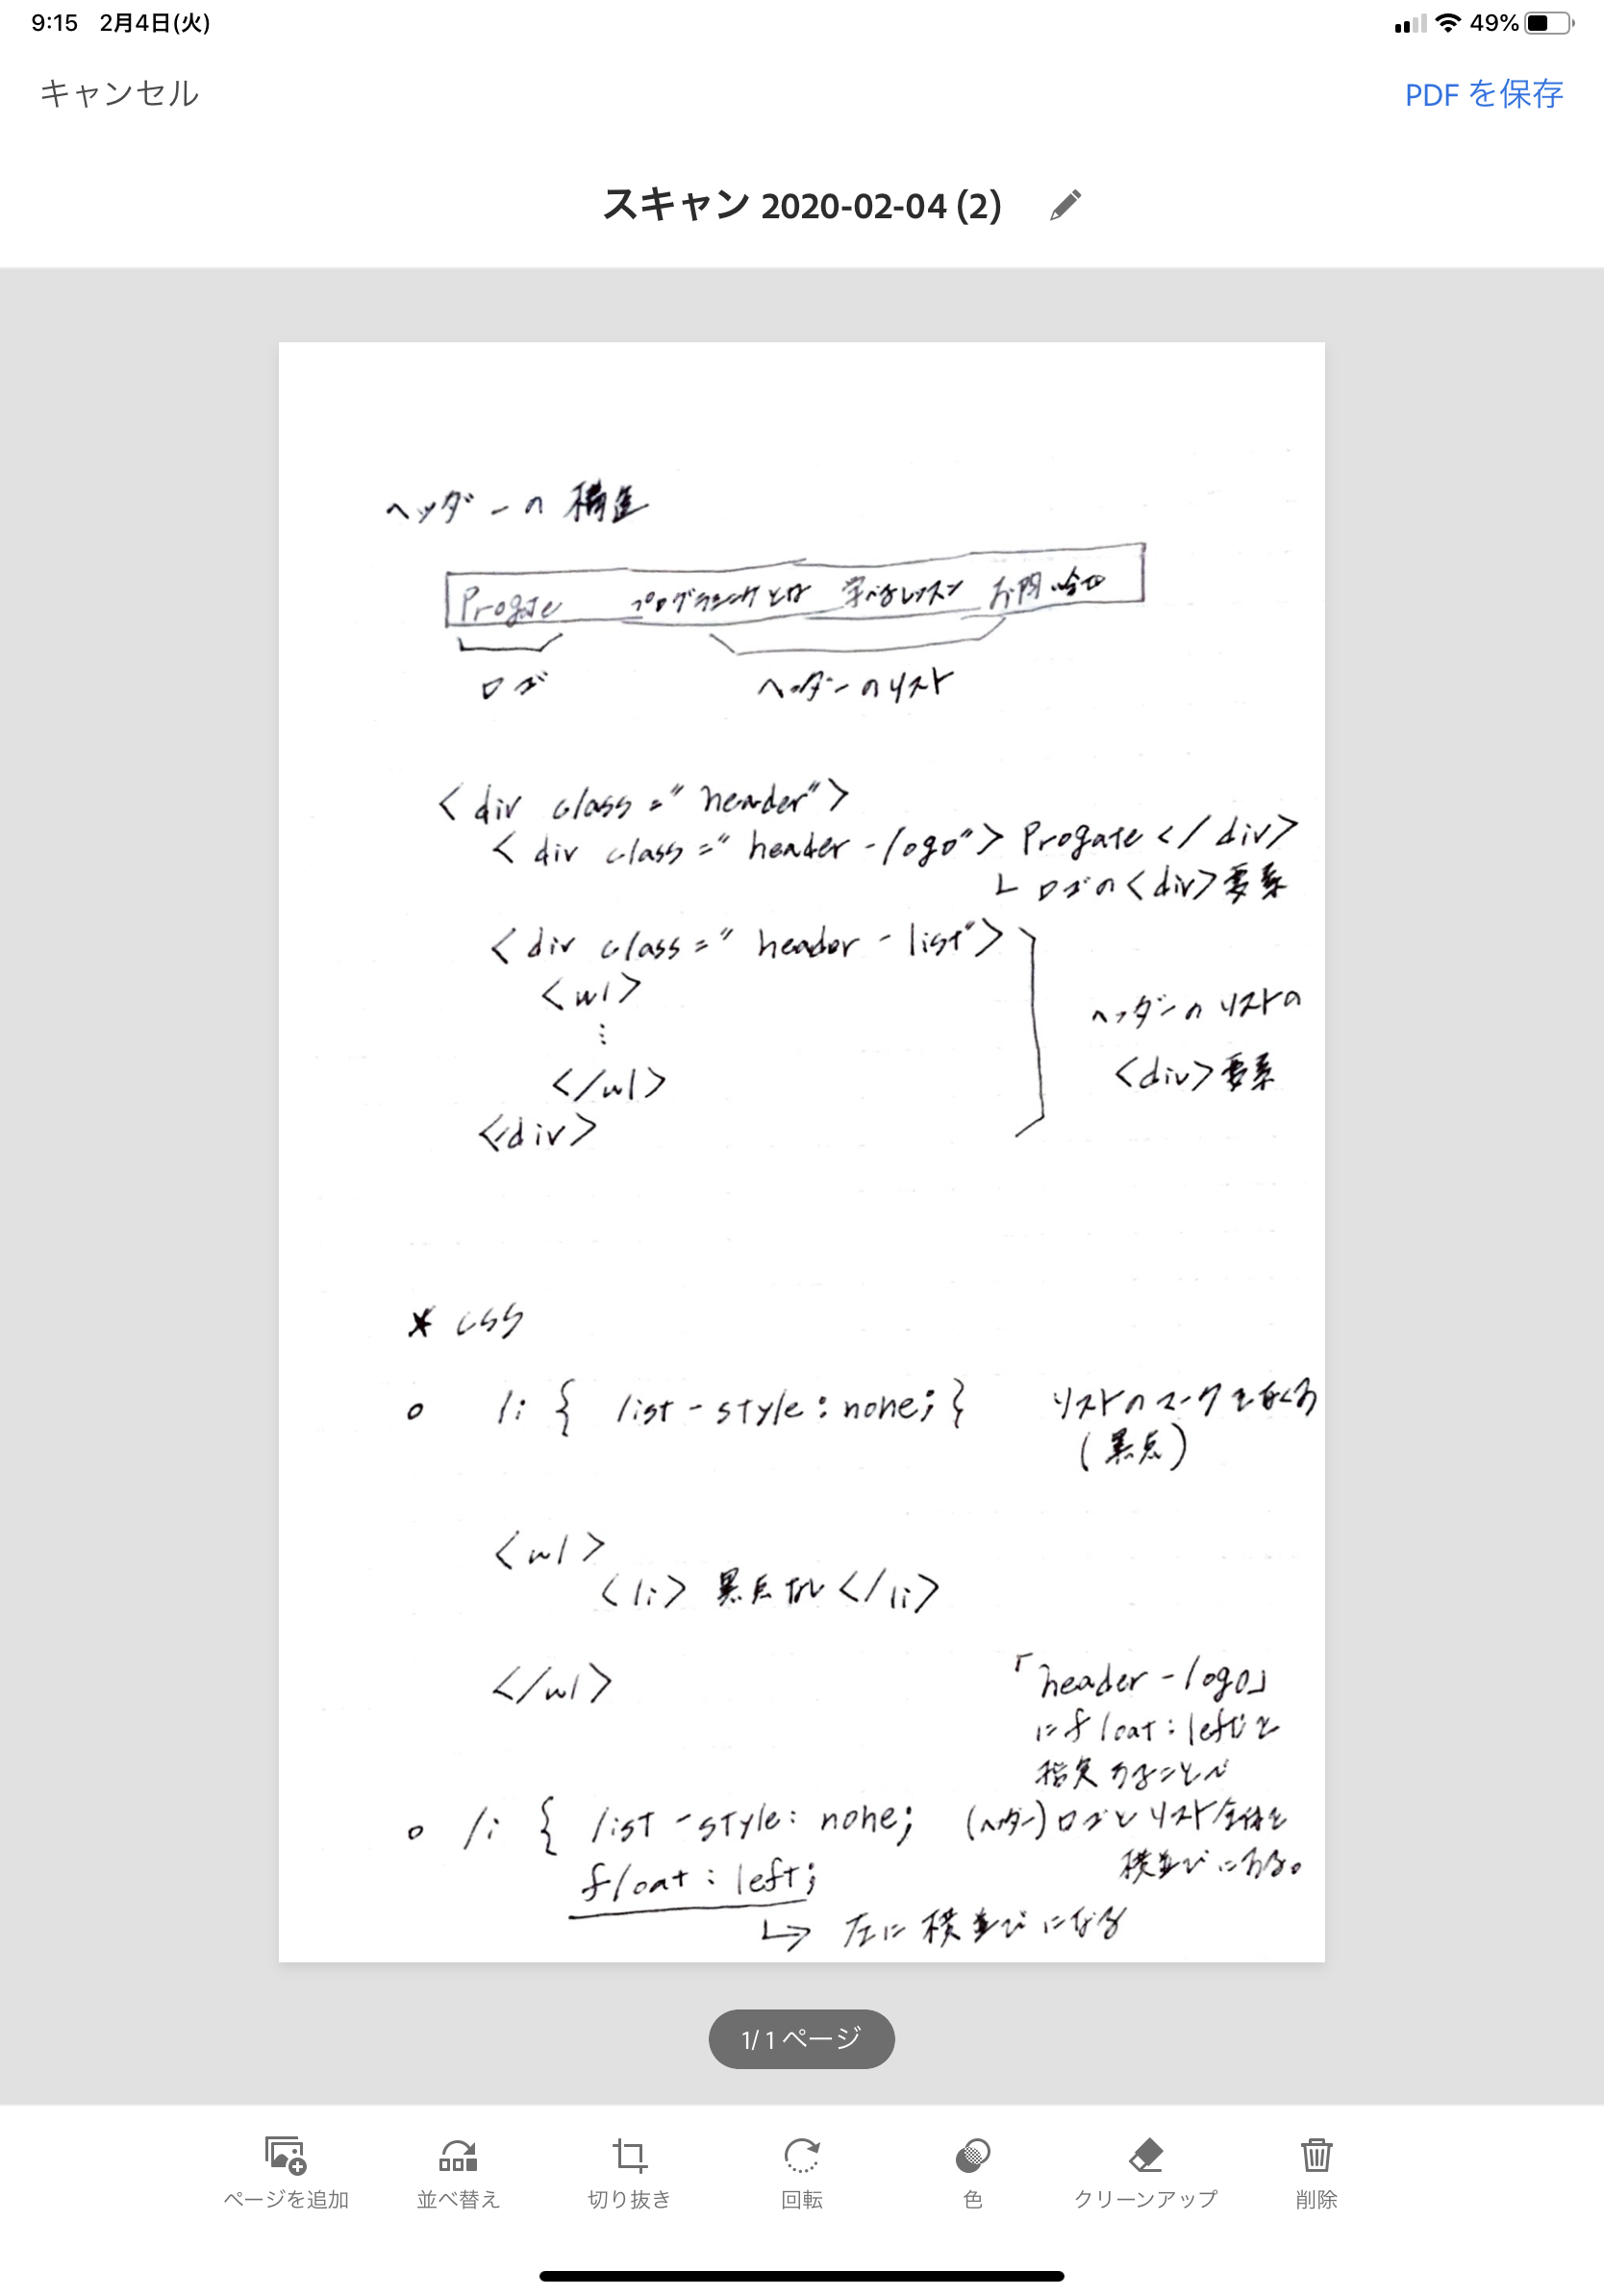 9:15 2月4日(火) 49%
キャンセル PDF を保存
スキャン 2020-02-04 (2)
ヘッダーの構造
Progate プログラミングとは 学べるレッスン お問い合わせ
ロゴ ヘッダーのリスト
<div class="header">
<div class="header-logo">Progate</div>
└ ロゴの<div>要素
<div class="header-list">
<ul>
⋮
ヘッダーのリストの
</ul>
<div>要素
</div>
* CSS
○ li { list-style:none;} リストのマークをなくる
(黒点)
<ul>
<li>黒点なし</li>
</ul>
「header-logo」
にfloat:left;を
指定することで
○ li { list-style: none; (ヘッダー)ロゴとリスト全体を
横並びにする。
float:left;
↳ 左に横並びになる
1/1ページ
ページを追加 並べ替え 切り抜き 回転 色 クリーンアップ 削除